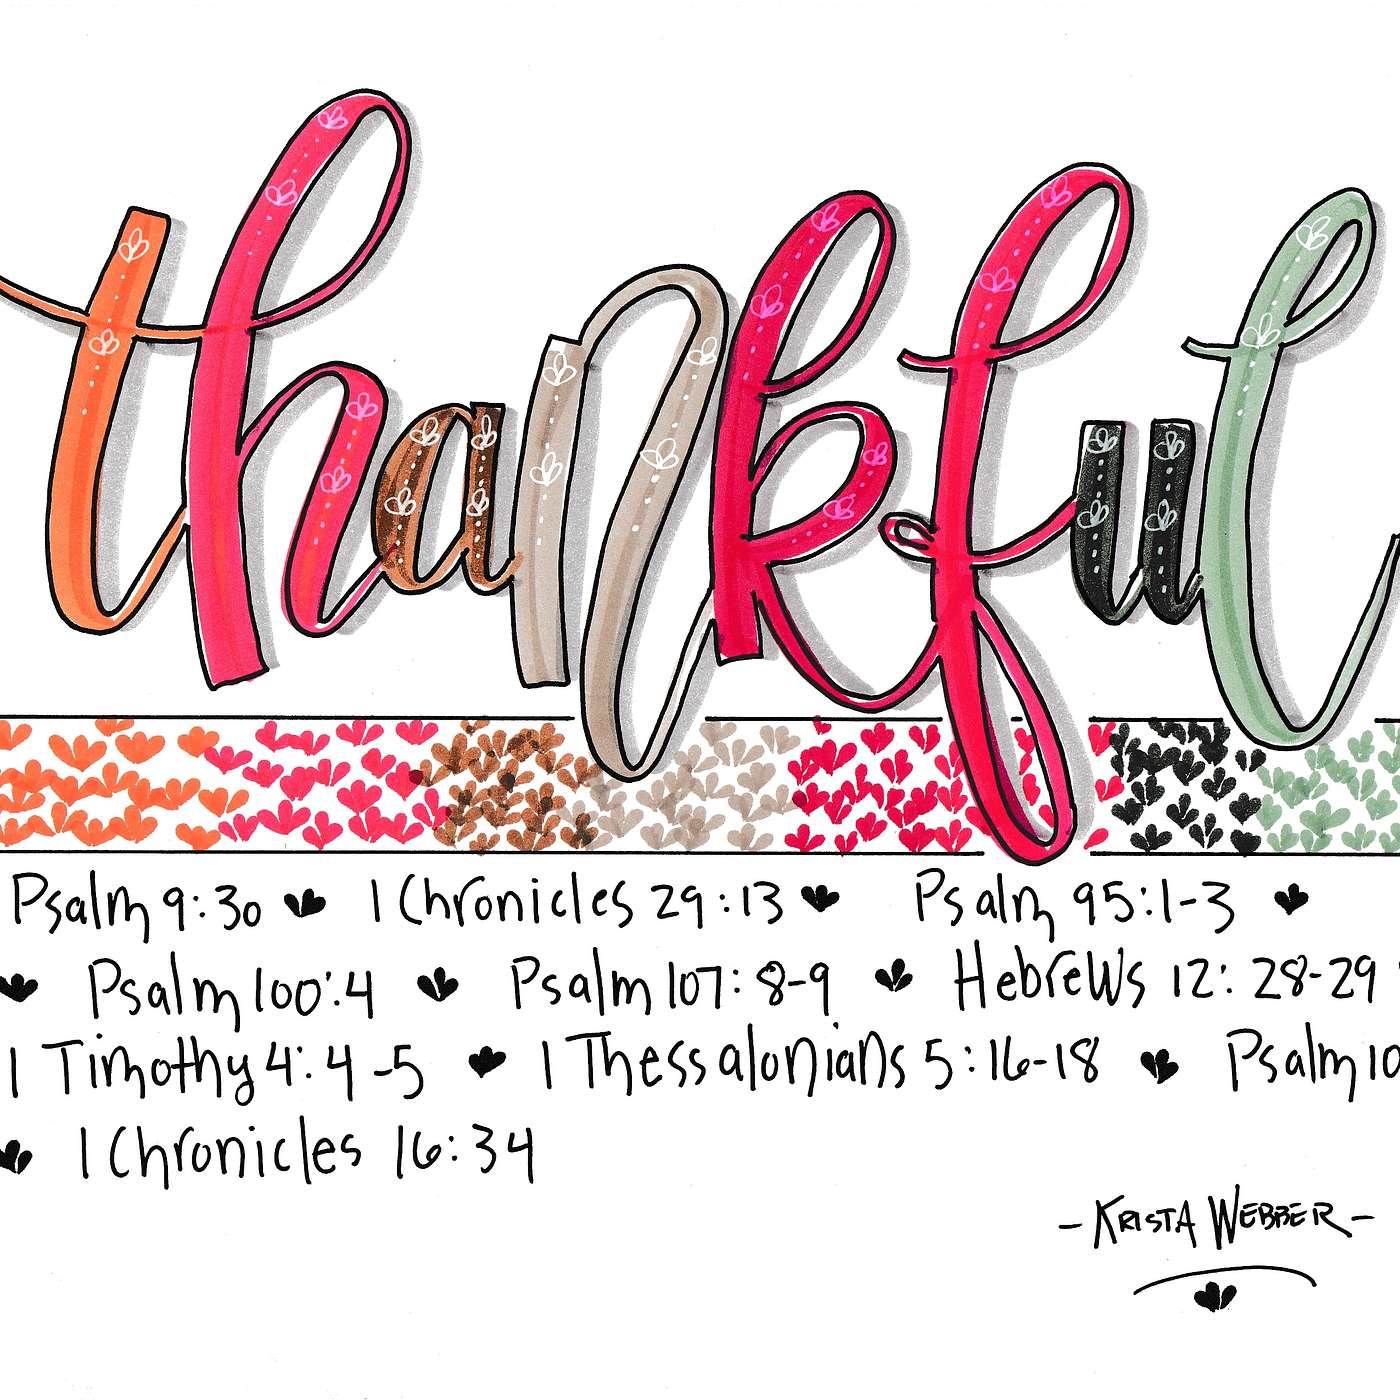 thankful
Psalm 9:30 1 Chronicles 29:13 Psalm 95:1-3
Psalm 100:4 Psalm 107: 8-9 Hebrews 12: 28-29
1 Timothy 4: 4-5 1 Thessalonians 5:16-18 Psalm 10
1 Chronicles 16:34
- KRISTA WEBBER -